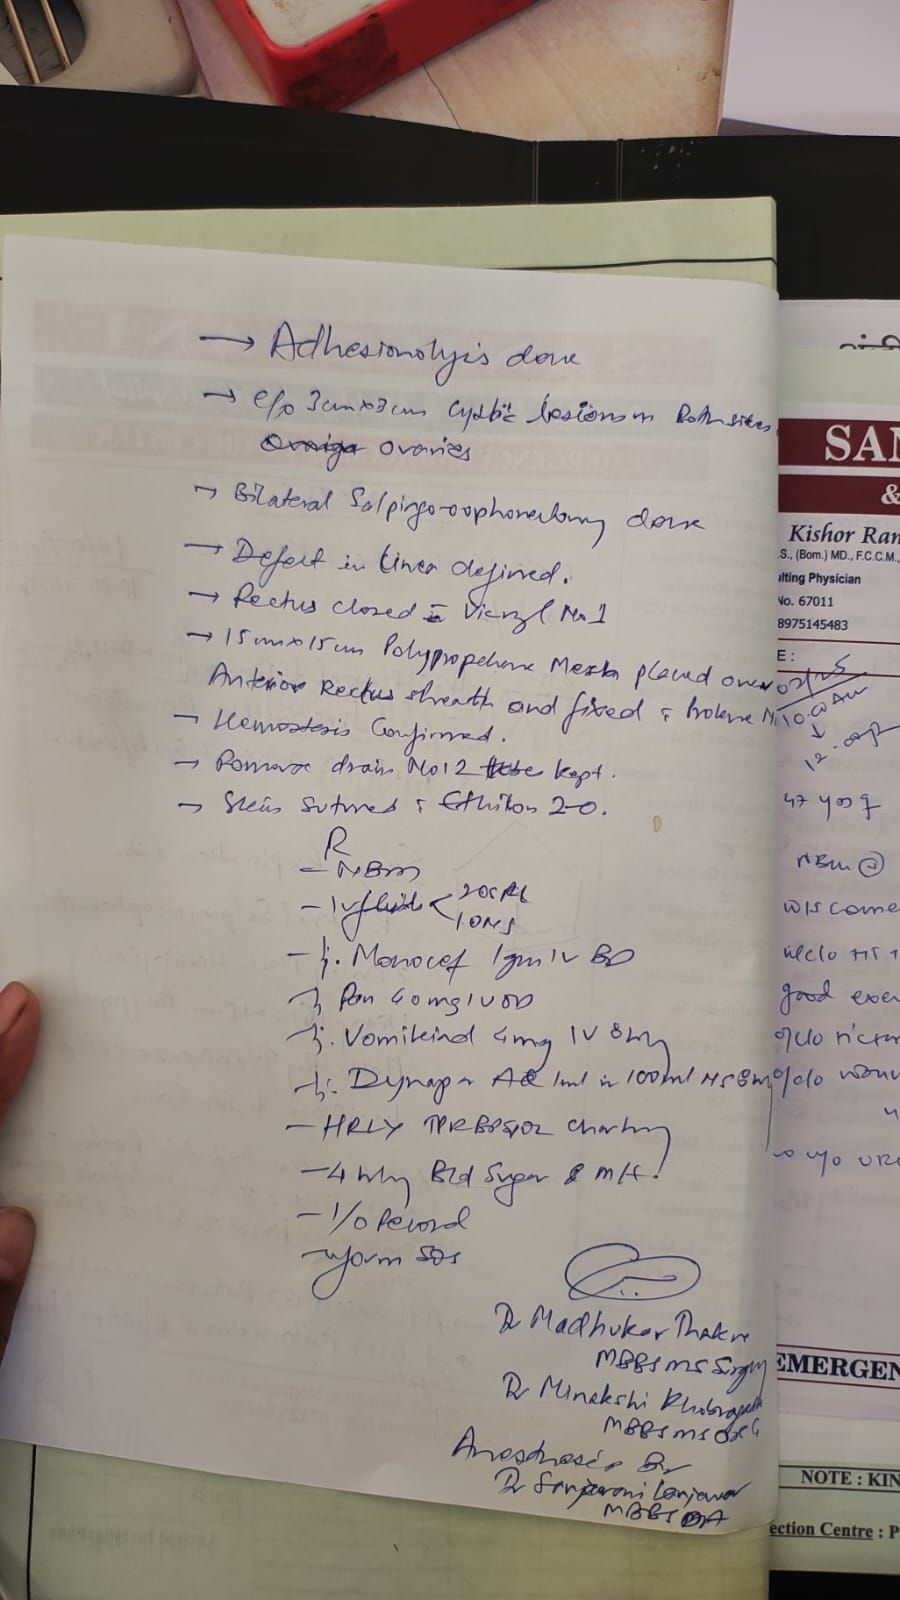 → Adhesionolysis done
→ e/o 3cmx3cm Cystic lesions in Both sides
ovaries
→ Bilateral Salpingo-oophorectomy done
→ Defect in linea defined.
→ Rectus closed c̄ Vicryl No 1
→ 15cmx15cm Polypropelene Mesh placed over
Anterior Rectus sheath and fixed c̄ Prolene
→ Hemostesis Confirmed.
→ drain No 12 kept.
→ Skin sutured c̄ Ethilon 2-0.
R
- NBM
- IV fluids < 20S RL
10NS
- Inj. Monocef 1gm IV BD
Inj Pan 40mg IV OD
- Inj. Vomikind 4mg IV 8hrly
- Inj. Dynapar AQ 1ml in 100ml NS 8hrly
- HRLY TPRBPSPO2 Charting
- 4 hrly Bld Sugar
- I/O Record
- Inform SOS
Dr Madhukar Thakre
MBBS MS Surgery
Dr Minakshi
MBBS MS
Anesthesia By
Dr Lanjewar
MBBS DA
SAN
&
Kishor Ran
.S., (Bom.) MD., F.C.C.M.,
ulting Physician
No. 67011
8975145483
E :
10.00 AM
↓
47 yos
NBM
come
good
EMERGEN
NOTE : KIN
ection Centre : P